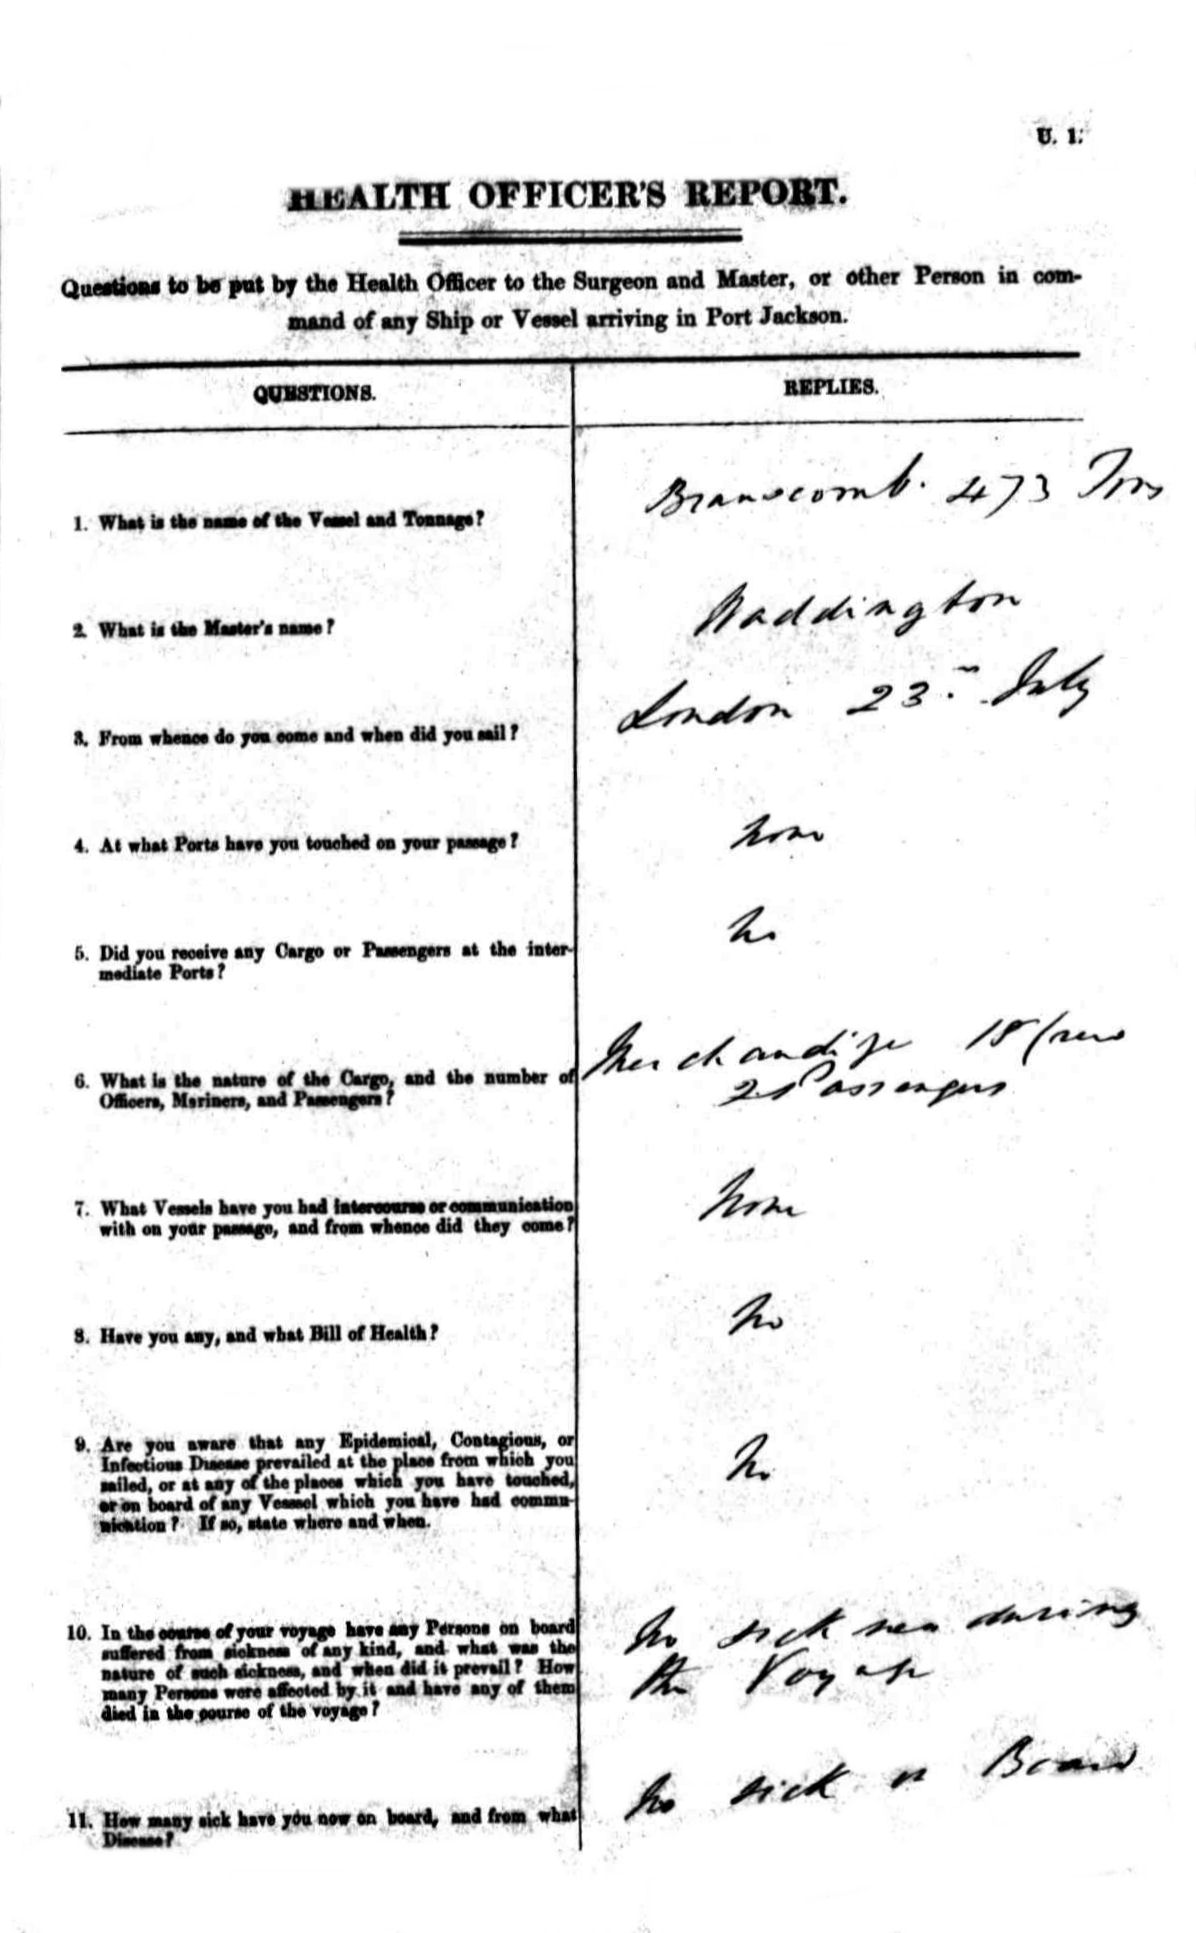 U. 1.
HEALTH OFFICER'S REPORT.
Questions to be put by the Health Officer to the Surgeon and Master, or other Person in com-
mand of any Ship or Vessel arriving in Port Jackson.
QUESTIONS.
REPLIES.
1. What is the name of the Vessel and Tonnage?
Branscomb. 473 Tons
2. What is the Master's name?
Waddington
3. From whence do you come and when did you sail?
London 23 July
4. At what Ports have you touched on your passage?
None
5. Did you receive any Cargo or Passengers at the inter-
mediate Ports?
No
6. What is the nature of the Cargo, and the number of
Officers, Mariners, and Passengers?
Merchandize 18 Crew
2 Passengers
7. What Vessels have you had intercourse or communication
with on your passage, and from whence did they come?
None
8. Have you any, and what Bill of Health?
No
9. Are you aware that any Epidemical, Contagious, or
Infectious Disease prevailed at the place from which you
sailed, or at any of the places which you have touched,
or on board of any Vessel which you have had commu-
nication? If so, state where and when.
No
10. In the course of your voyage have any Persons on board
suffered from sickness of any kind, and what was the
nature of such sickness, and when did it prevail? How
many Persons were affected by it and have any of them
died in the course of the voyage?
No sickness during
the Voyage
11. How many sick have you now on board, and from what
Disease?
No sick on Board